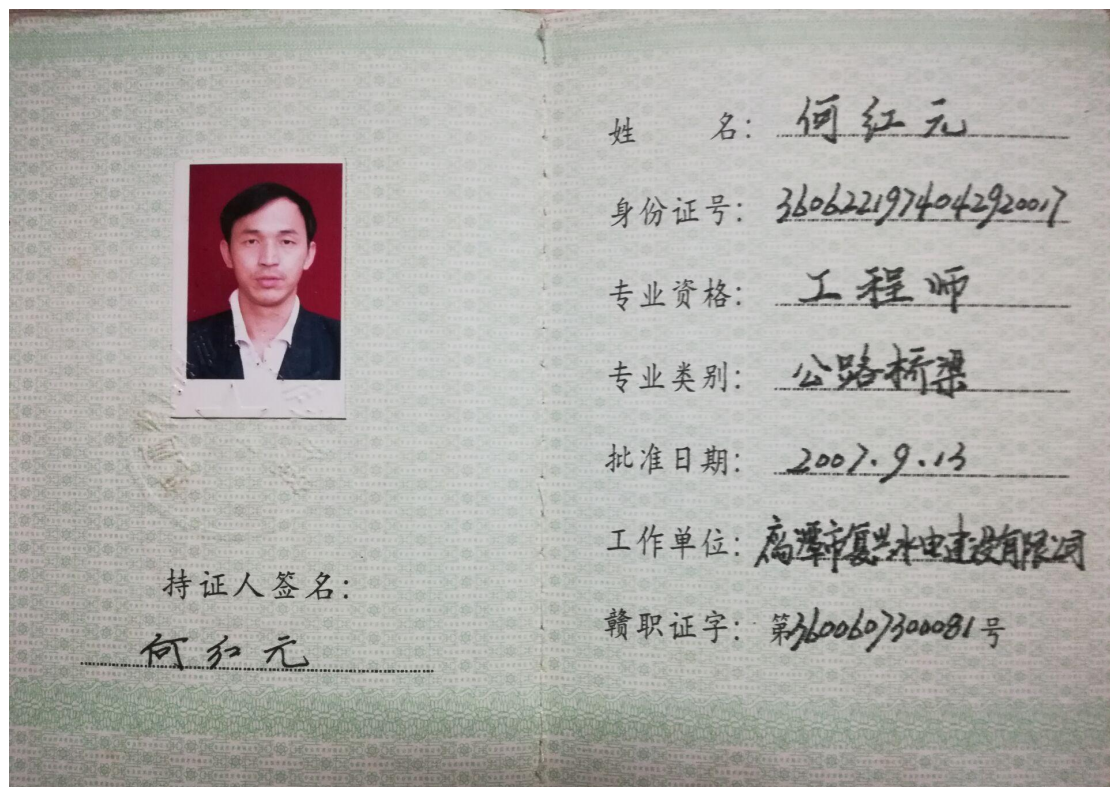 持证人签名：
何红元
姓 名：何红元
身份证号：3606221974042920017
专业资格：工程师
专业类别：公路桥梁
批准日期：2007.9.13
工作单位：鹰潭市复兴水电建设有限公司
赣职证字：第3600607300081号